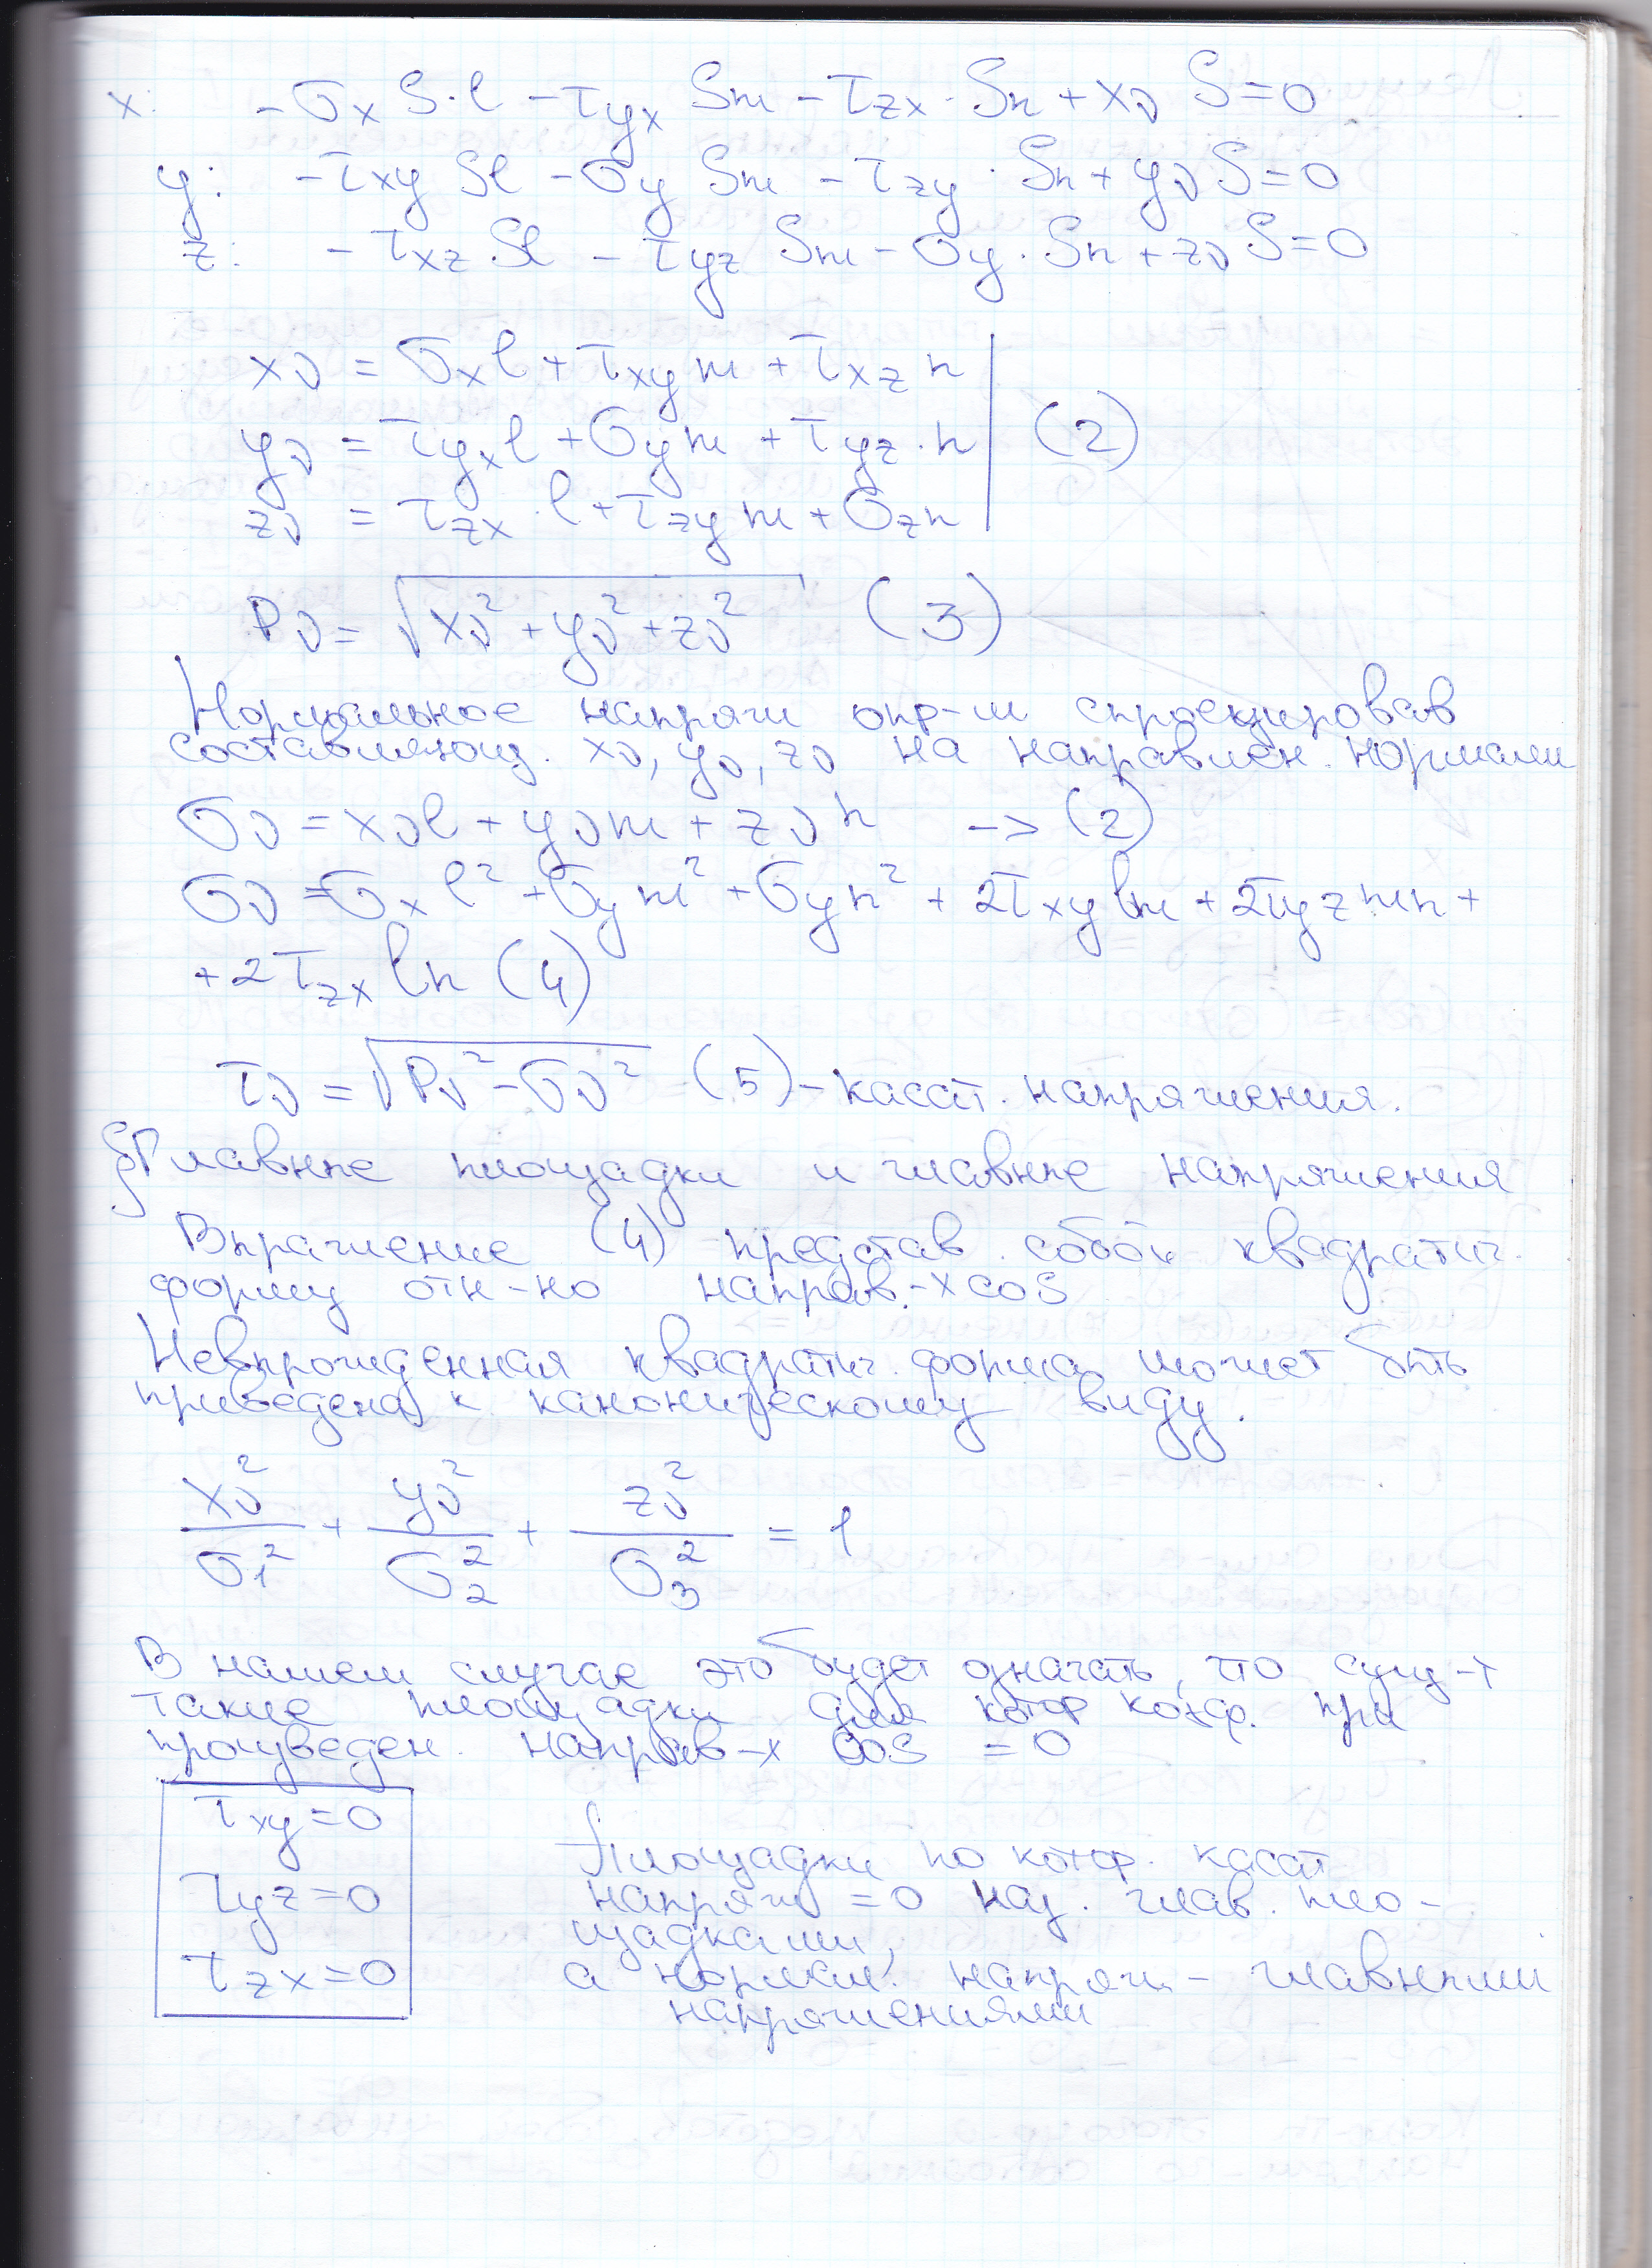 x: -σx S·l - τyx Sm - τzx·Sn + xν S=0
y: -τxy Sl - σy Sm - τzy·Sn + yν S=0
z: -τxz Sl - τyz Sm - σy·Sn + zν S=0
xν = σx l + τxy m + τxz n
yν = τyx l + σy m + τyz·n (2)
zν = τzx·l + τzy m + σz n
Pν = √(xν² + yν² + zν²) (3)
Нормальное напряж опр-м спроецировав
составляющ. xν, yν, zν на направлен. нормали
σν = xν l + yν m + zν n -> (2)
σν = σx l² + σy m² + σy n² + 2τxy lm + 2τyz mn +
+ 2τzx ln (4)
τν = √(Pν² - σν²) (5) - касат. напряжения.
§ Главные площадки и главные напряжения
Выражение (4) представ. собой квадратич.
форму отн-но направ.-х cos
Невырожденная квадратич. форма может быть
приведена к каноническому виду.
xν²/σ1² + yν²/σ2² + zν²/σ3² = 1
В нашем случае это будет означать, что сущ-т
такие площадки для котор коэф. при
произведен. направ-х cos = 0
τxy=0
τyz=0
τzx=0
Площадки по котор. касат
напряж = 0 наз. глав. пло-
щадками,
а нормал. напряж. - главными
напряжениями